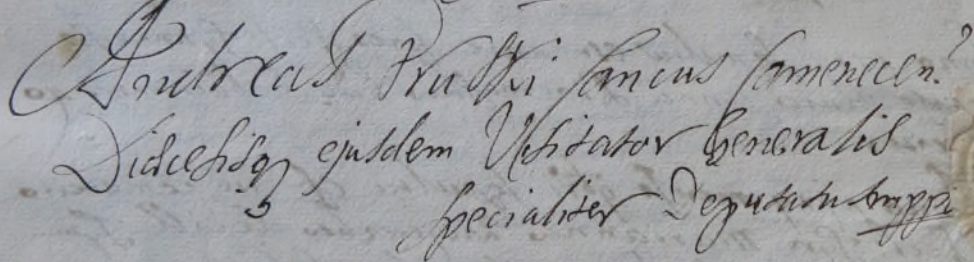 Andreas Pruski Cancus Camenecen.
Diæcesisq ejusdem Visitator Generalis
specialiter Deputatus mppr